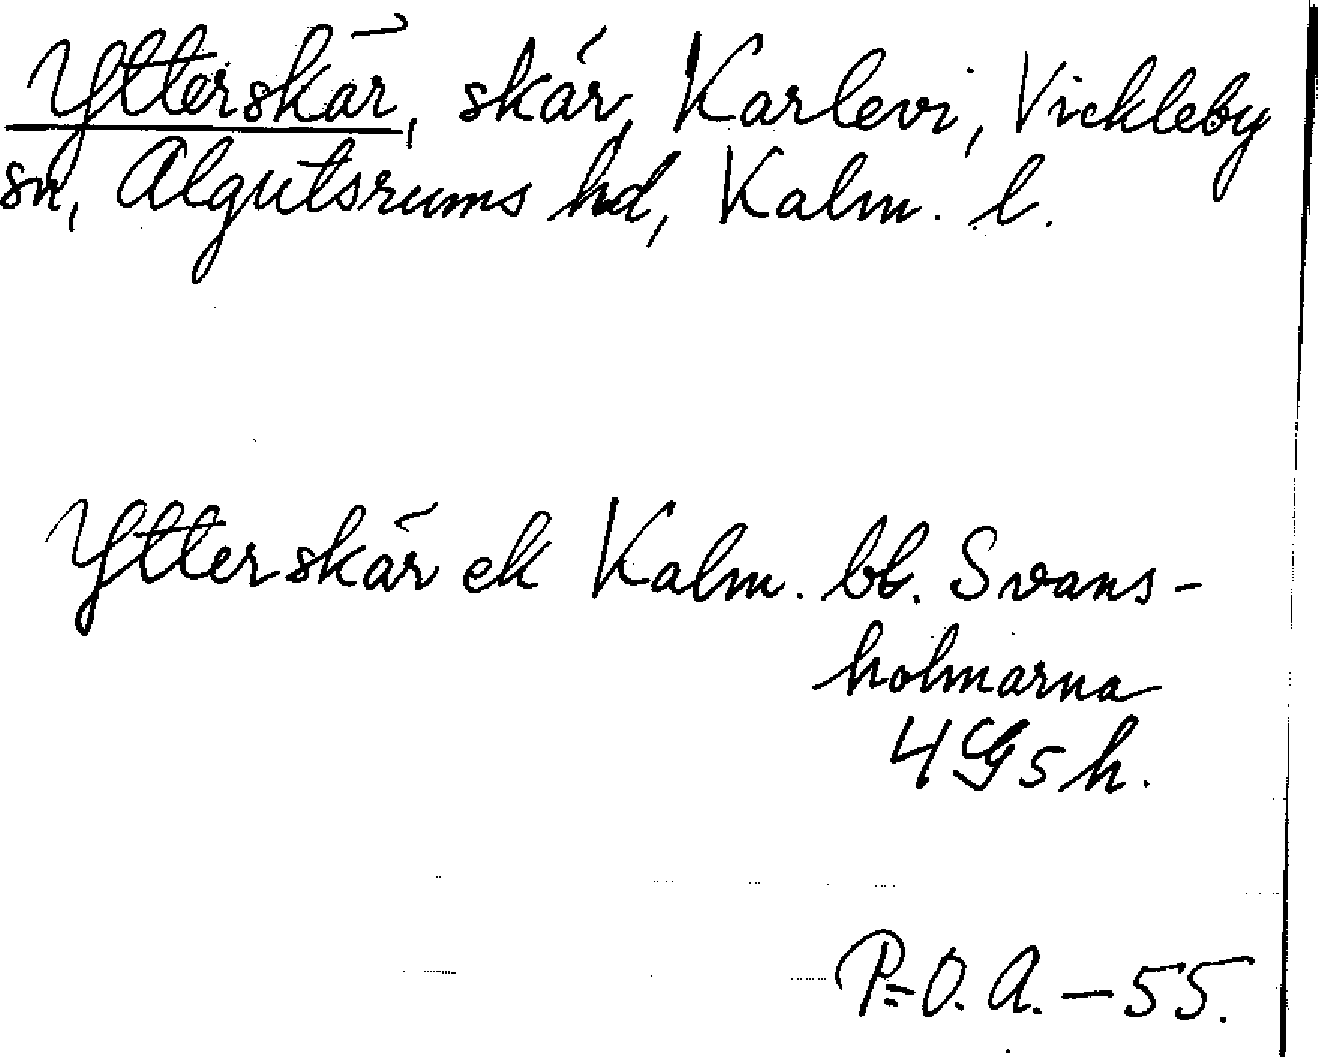 Ytterskär, skär, Karlevi, Vickleby
sn, Algutsrums hd, Kalm. l.
Ytterskär ek Kalm. bl. Svans-
holmarna
4G5h.
P=O. A. – 55.